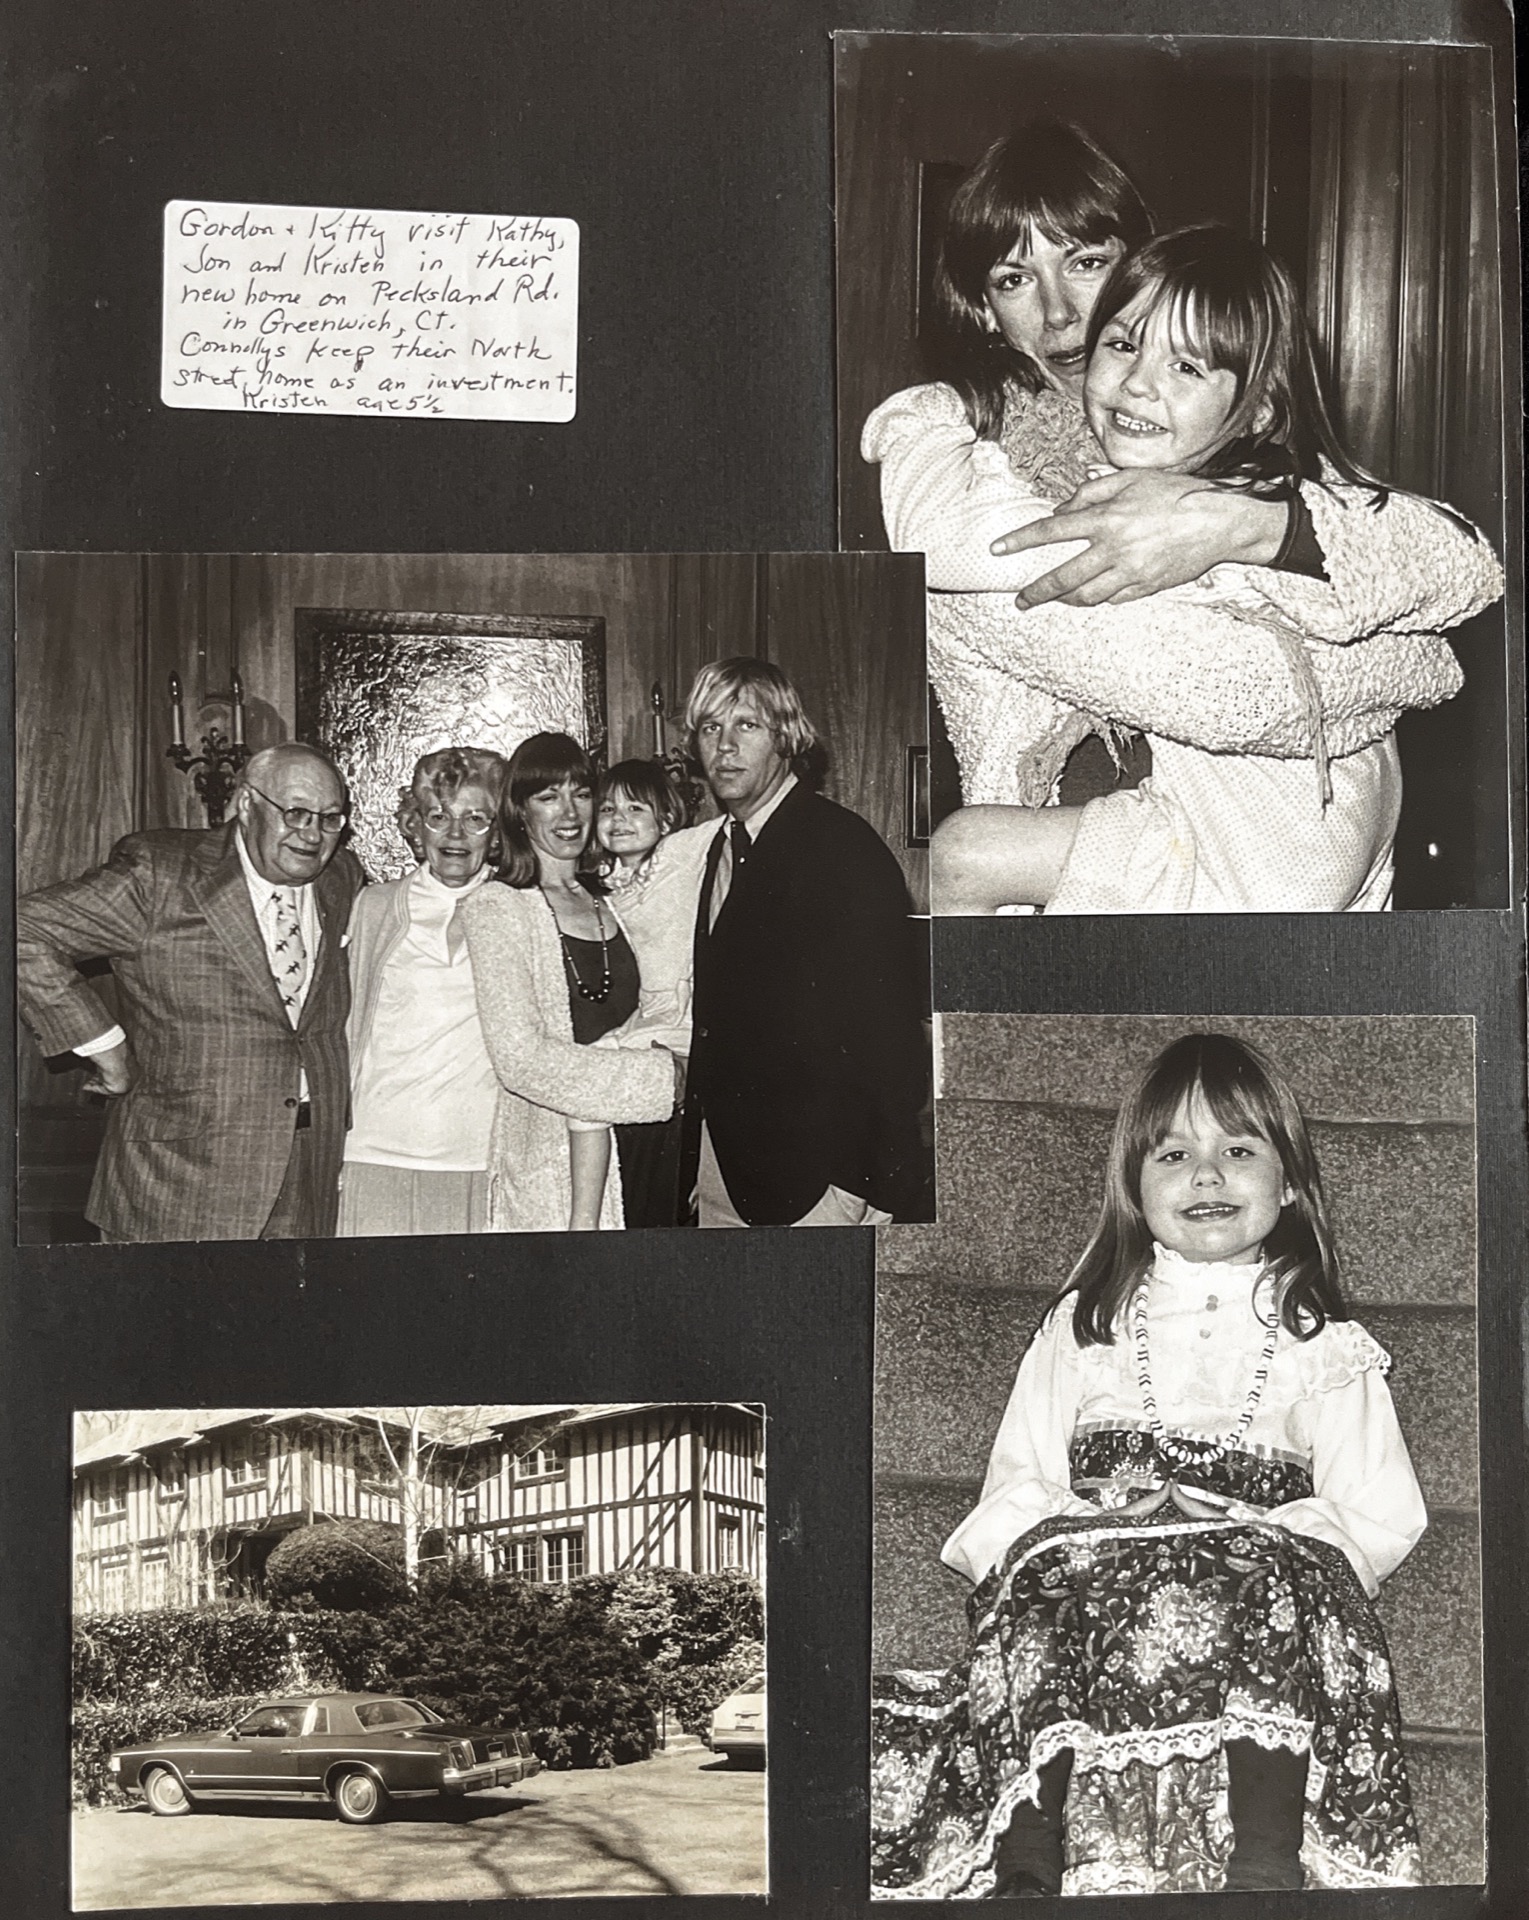 Gordon + Kitty visit Kathy,
Jon and Kristen in their
new home on Pecksland Rd.
in Greenwich, Ct.
Connollys keep their North
Street, home as an investment.
Kristen age 5½